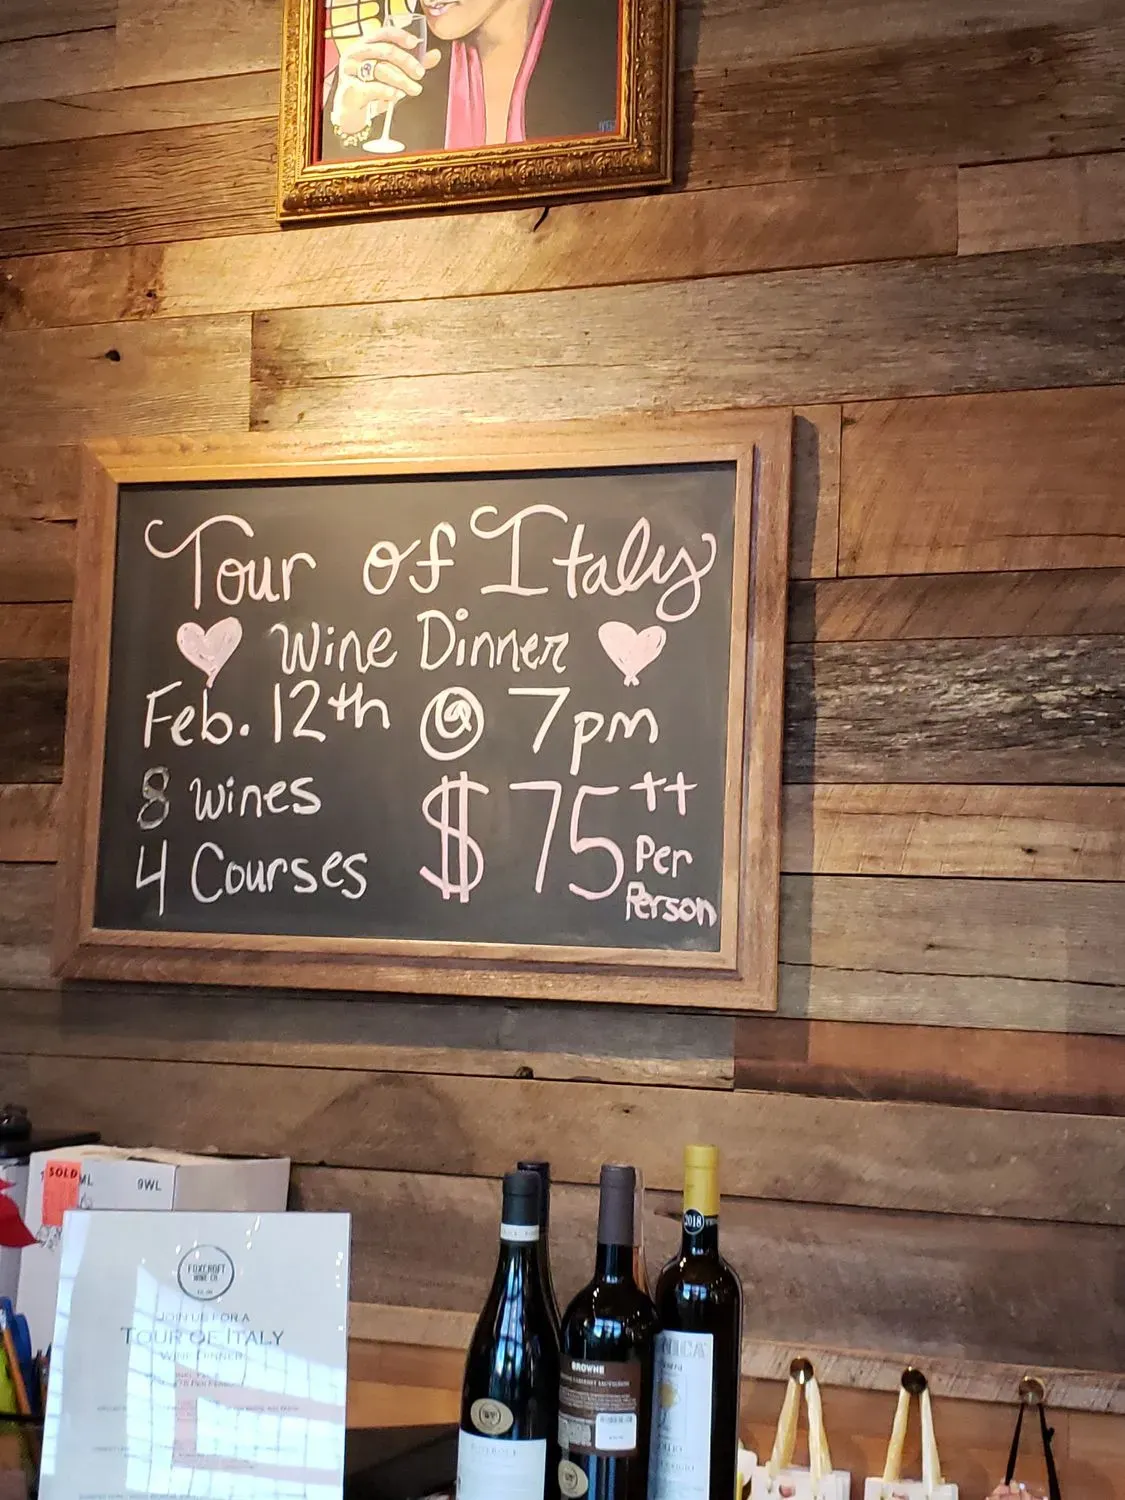 Tour of Italy
Wine Dinner
Feb. 12th @ 7pm
8 wines
4 Courses
$75++
Per
Person
SOLD
9WL
FOXCROFT
WINE CO.
JOIN US FOR A
TOUR OF ITALY
WINE DINNER
BROWNE
CABERNET SAUVIGNON
2018